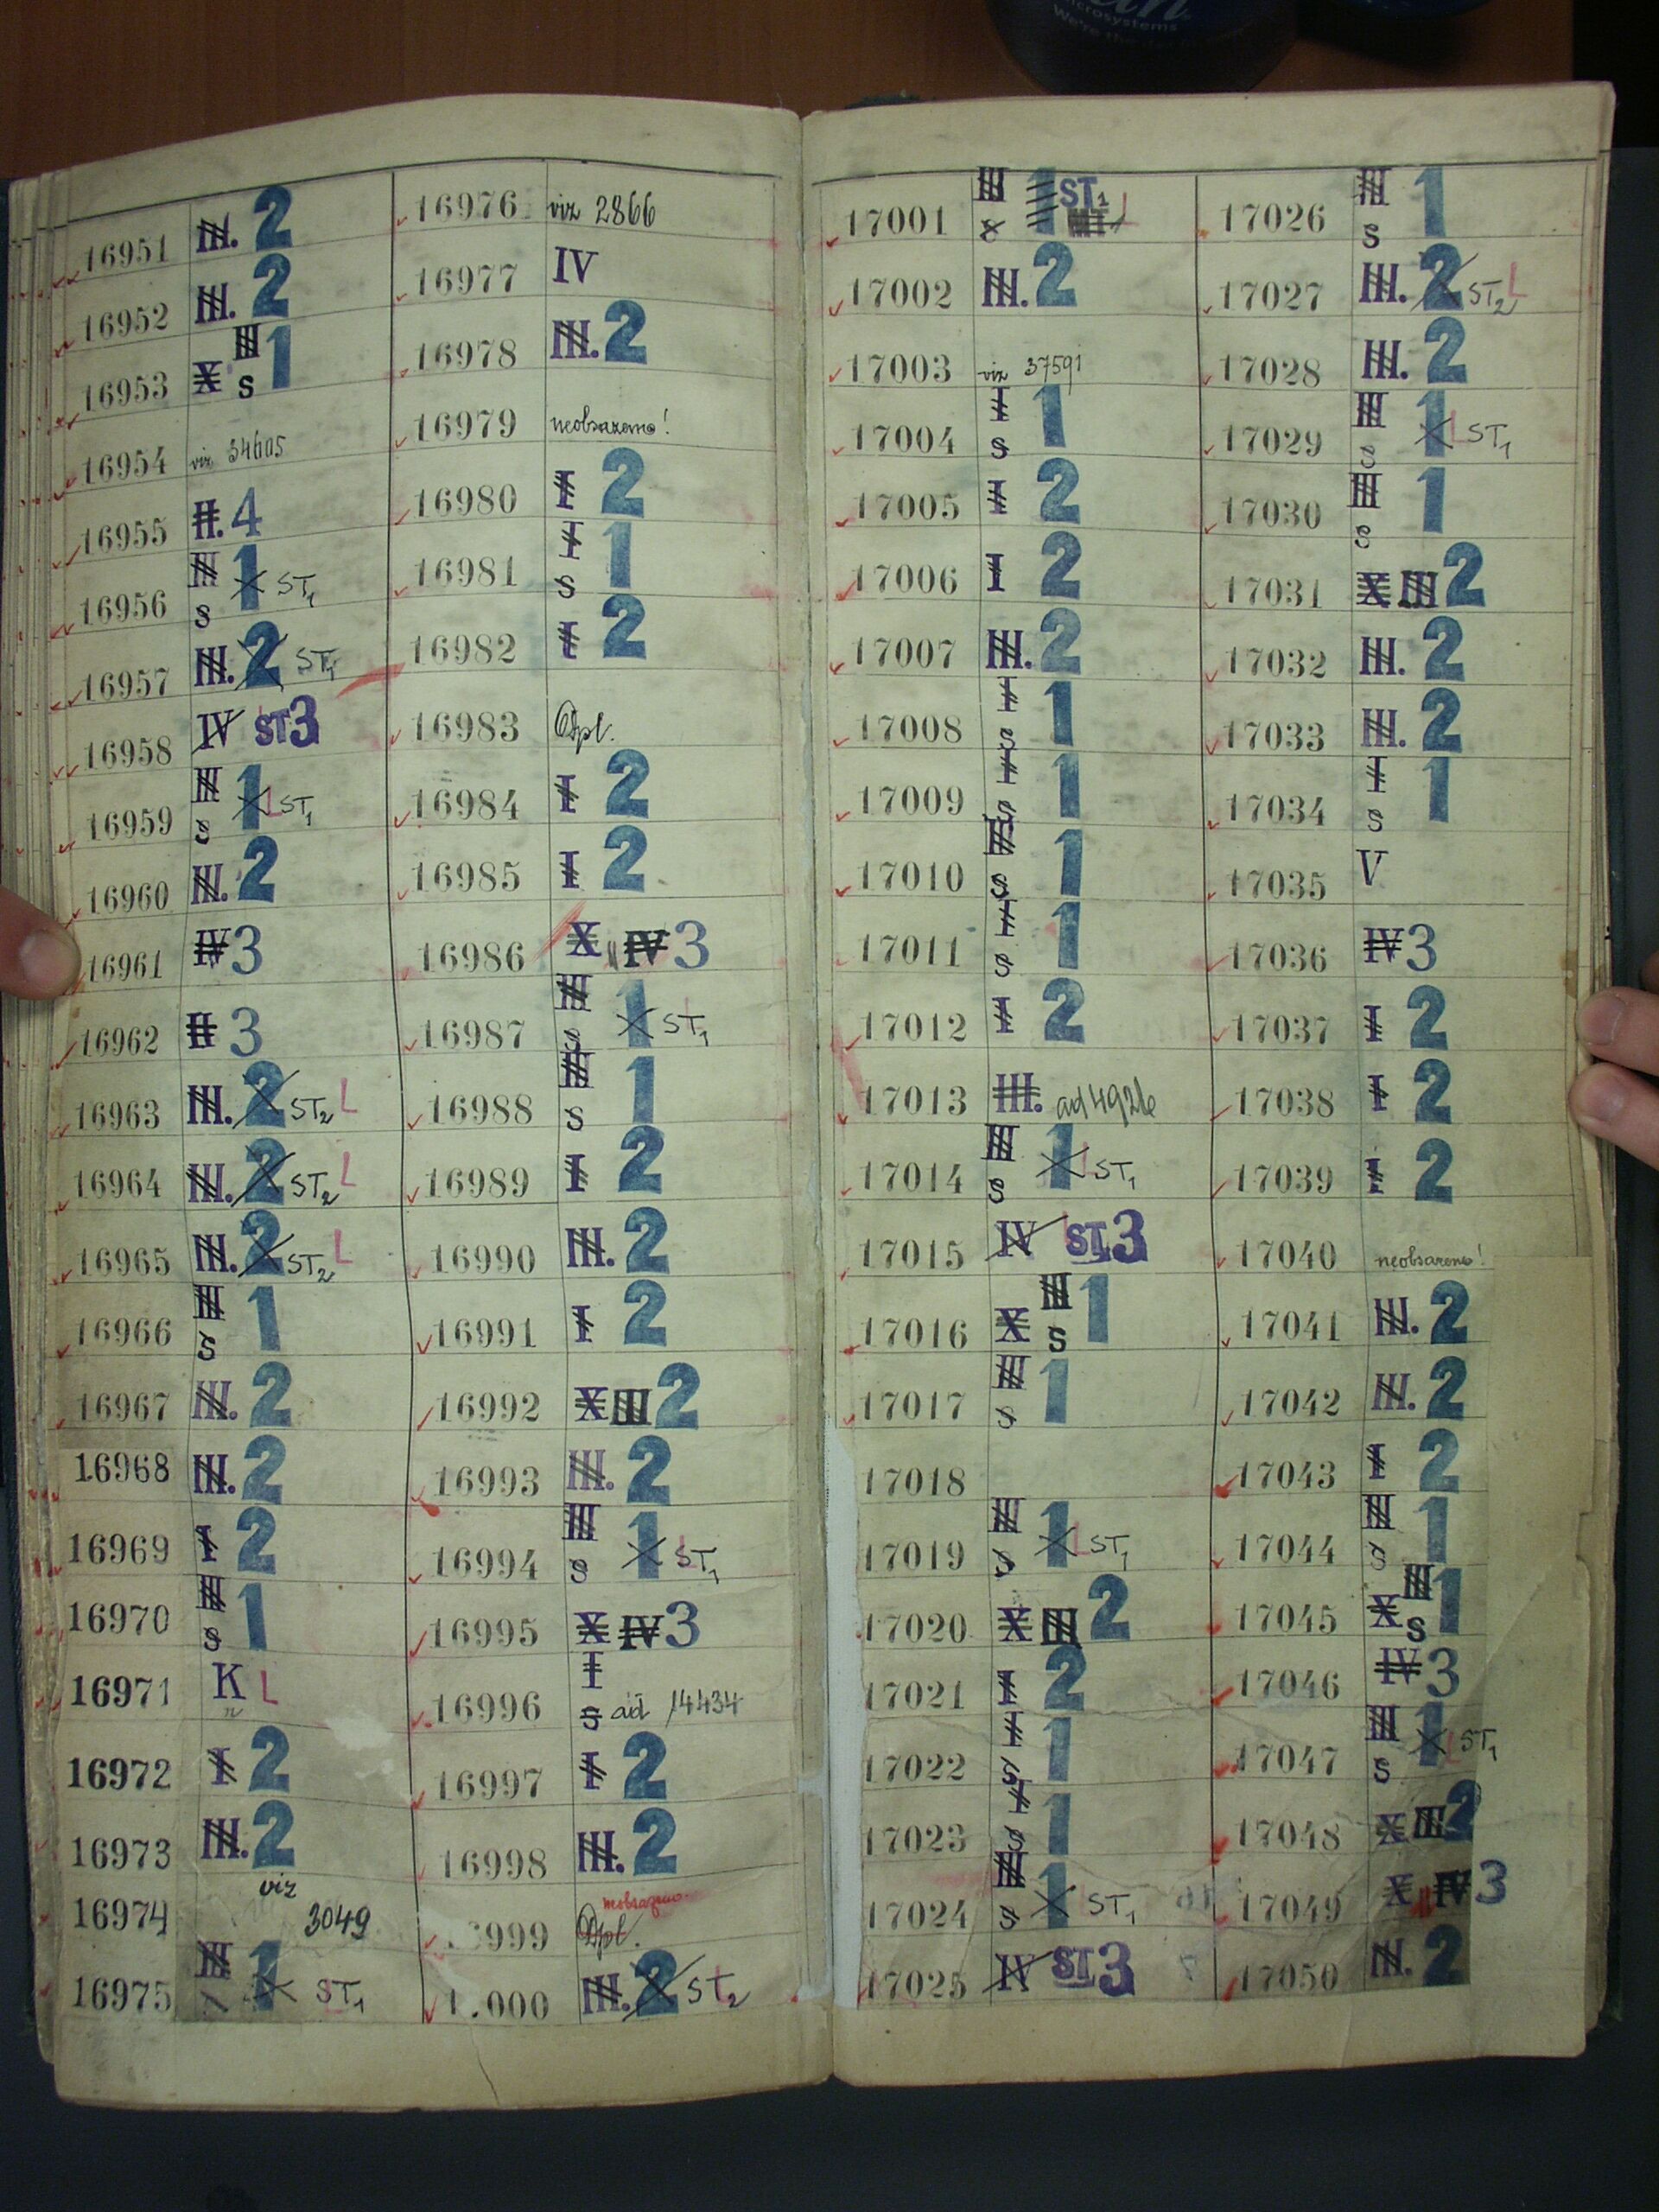 microsystems
16951 III. 2
16952 III. 2
16953 X III s 1
16954 viz 34605
16955 II. 4
16956 III s 1 ST1
16957 III. 2 ST1
16958 IV ST 3
16959 III s 1 L ST1
16960 III. 2
16961 IV 3
16962 II 3
16963 III. 2 ST2 L
16964 III. 2 ST2 L
16965 III. 2 ST2 L
16966 III s 1
16967 III. 2
16968 III. 2
16969 I 2
16970 III s 1
16971 K L
16972 I 2
16973 III. 2
16974 viz 3049
16975 III 1 ST1
16976 viz 2866
16977 IV
16978 III. 2
16979 neobsazeno!
16980 I 2
16981 I s 1
16982 I 2
16983 Dpl.
16984 I 2
16985 I 2
16986 X IV 3
16987 III s 1 ST1 L
16988 III s 1
16989 I 2
16990 III. 2
16991 I 2
16992 X III 2
16993 III. 2
16994 III s 1 L ST1
16995 X IV 3
16996 I s ad 14434
16997 I 2
16998 III. 2
999 neobsazeno Dpl.
1.000 III. 2 ST2
17001 III s 1 ST1 L
17002 III. 2
17003 viz 37591
17004 I s 1
17005 I 2
17006 I 2
17007 III. 2
17008 I s 1
17009 I s 1
17010 III s 1
17011 I s 1
17012 I 2
17013 III. ad 4926
17014 III s 1 L ST1
17015 IV ST 3
17016 X III s 1
17017 III s 1
17018
17019 III s 1 L ST1
17020 X III 2
17021 I 2
17022 I s 1
17023 I s 1
17024 III s 1 ST1
17025 IV ST 3
17026 III s 1
17027 III. 2 ST2 L
17028 III. 2
17029 III s 1 L ST1
17030 III s 1
17031 X III 2
17032 III. 2
17033 III. 2
17034 I s 1
17035 V
17036 IV 3
17037 I 2
17038 I 2
17039 I 2
17040 neobsazeno!
17041 III. 2
17042 III. 2
17043 I 2
17044 III s 1
17045 X III s 1
17046 IV 3
17047 III s 1 L ST1
17048 X III 2
17049 X IV 3
17050 III. 2